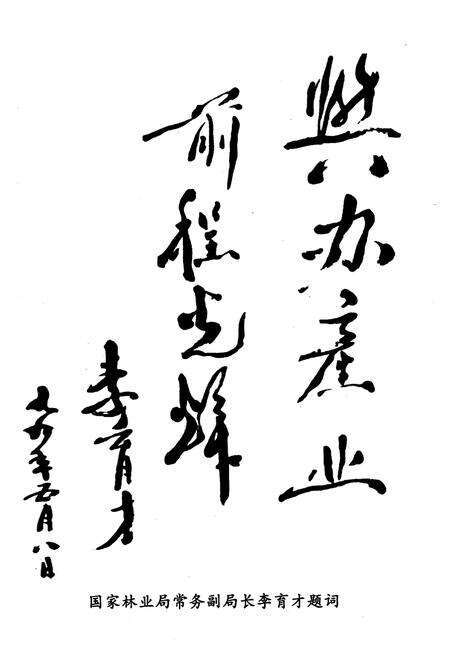 興办產业
前程光辉
李育才
九九年五月八日
国家林业局常务副局长李育才题词